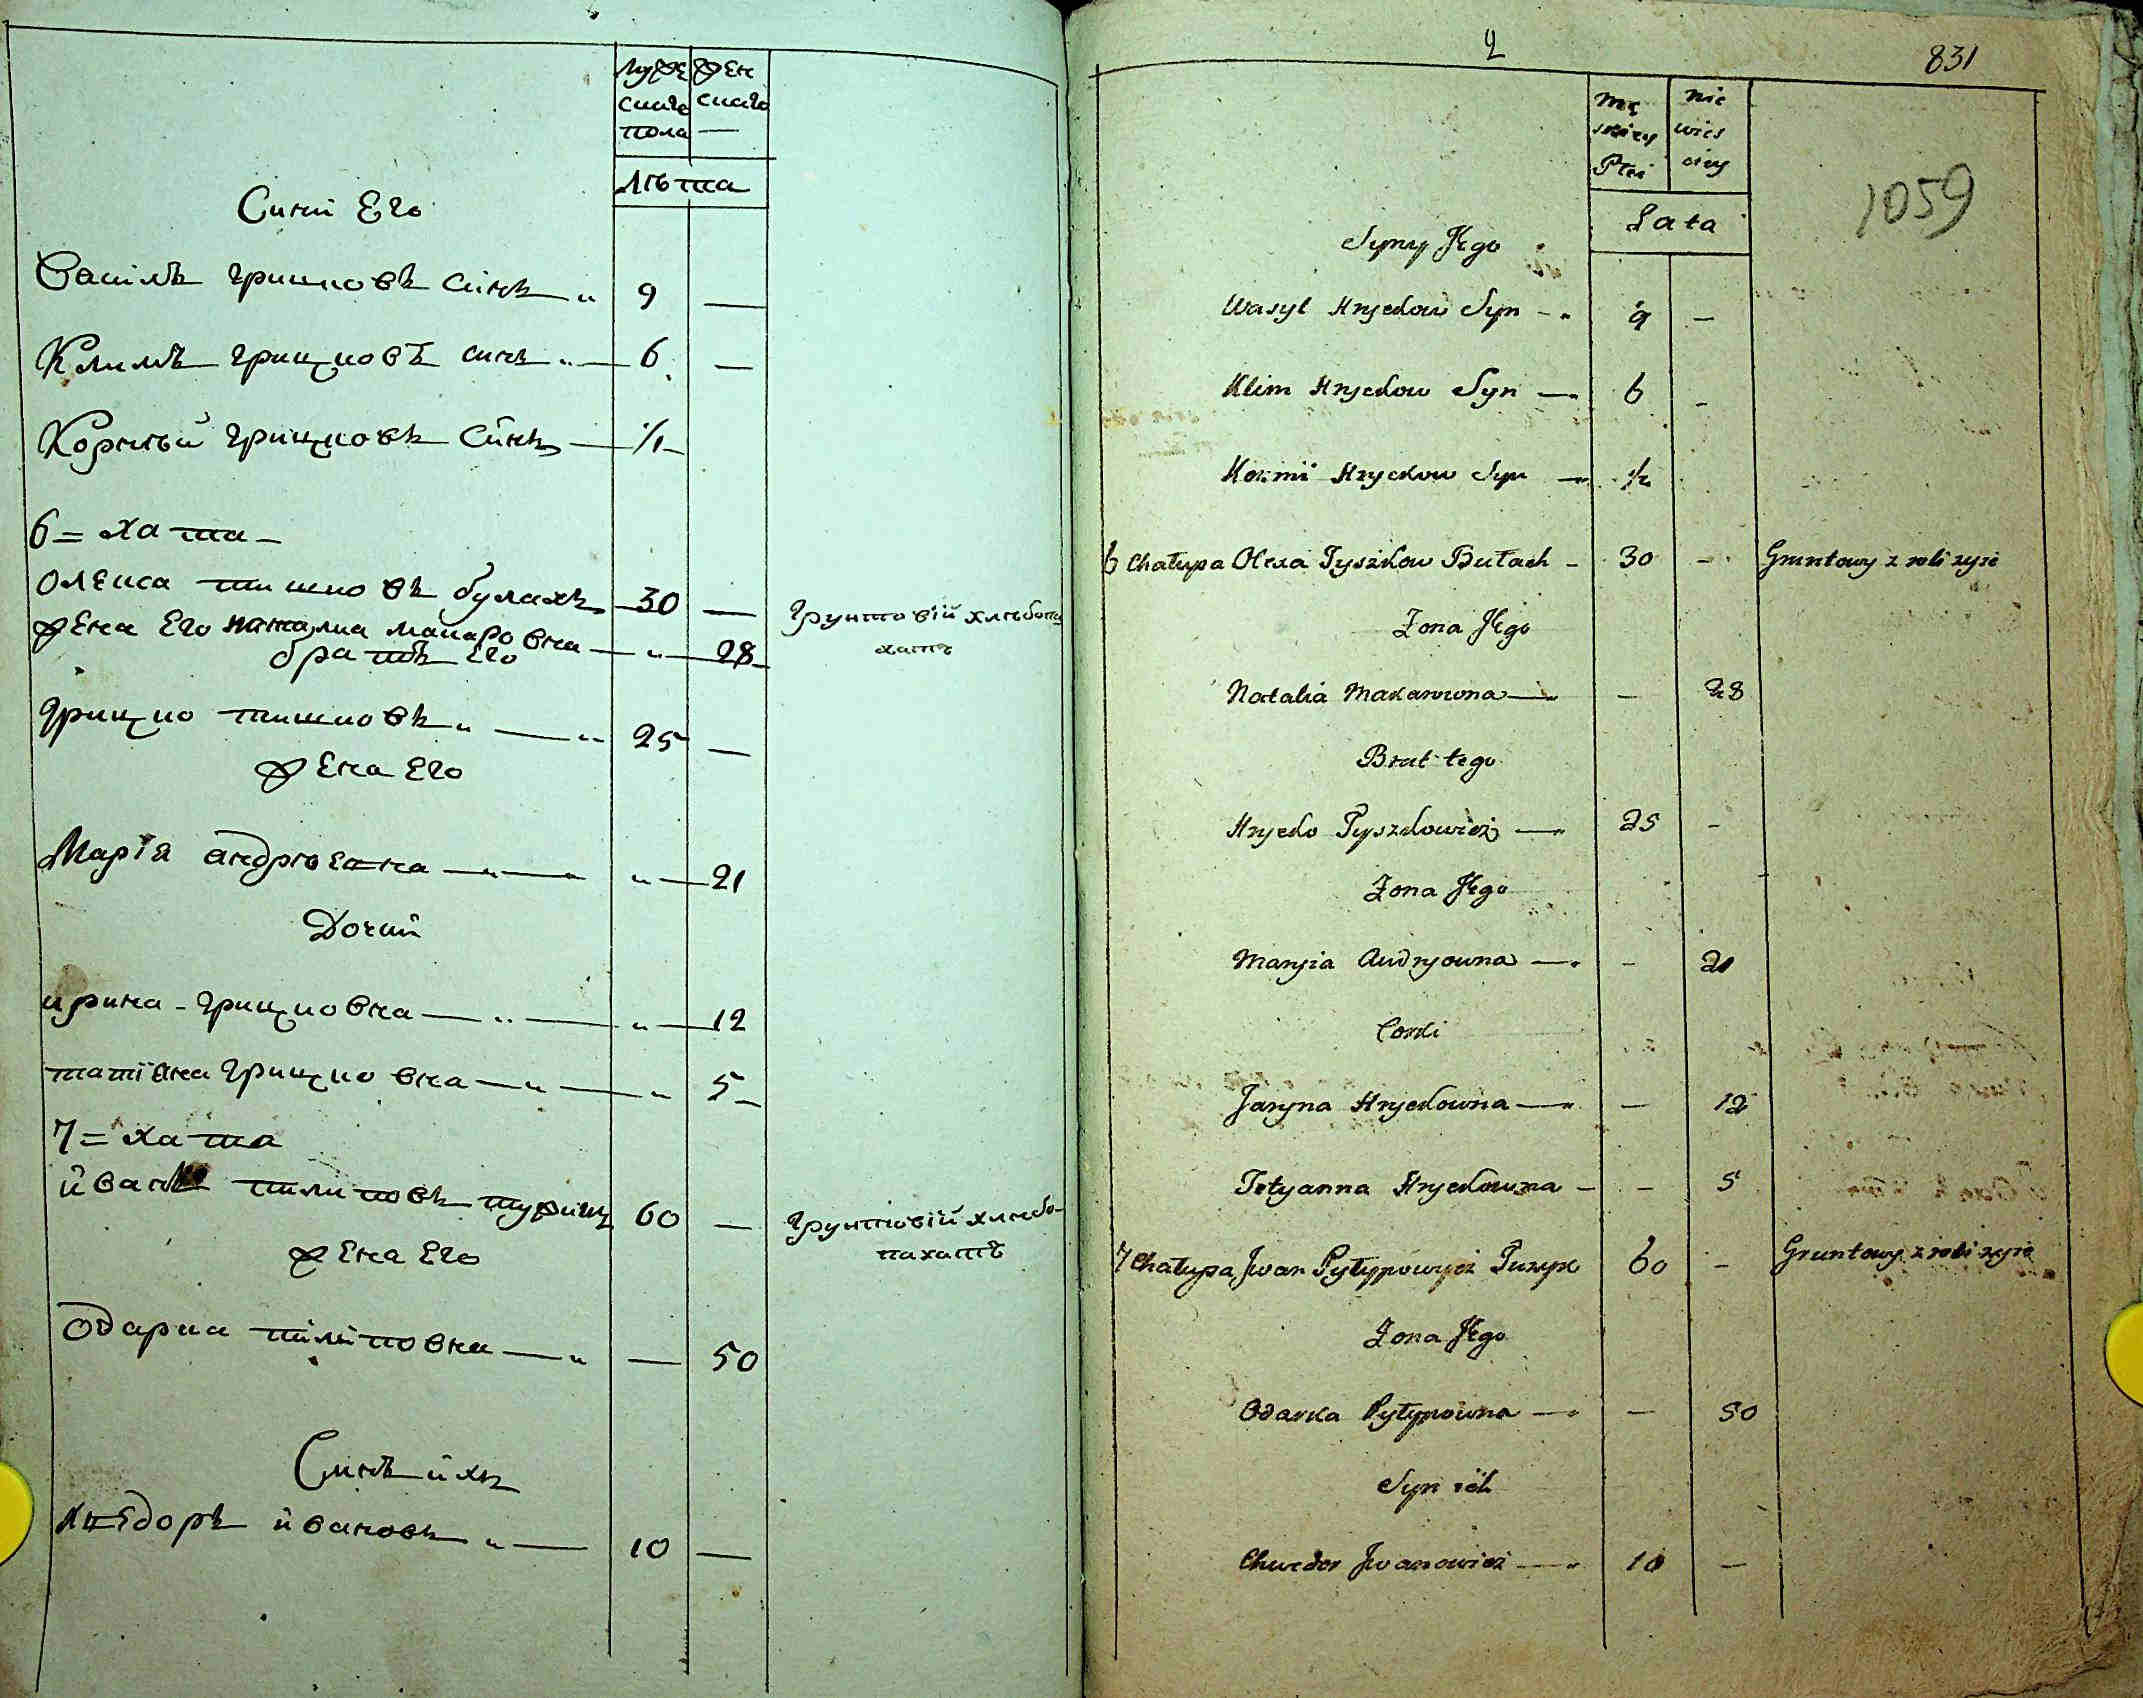 Мужескаго пола
Женскаго —
Лѣта
Сині Его
Василь грицковъ синъ „ 9 —
Климъ грицковъ синъ „ — 6 —
Корній грицковъ синъ — ½
6 = хата —
Олекса тишковъ булахъ — 30 — грунтовій хлѣбопа
жена Его наталка макаровна — „ — 28 хатъ
братъ Его
грицко тишковъ „ — „ 25 —
жена Его
Марія андрѣевна — „ — „ — 21
Дочки
ирина - грицковна — „ — „ — 12
татіяна грицковна — „ — „ 5 —
7 = хата
иванъ пилиповъ турикъ 60 — грунтовій хлѣбо-
жена Его пахатъ
одарка пиліповна — „ — 50
Синъ ихъ
хведоръ ивановъ „ — 10 —
2
831
Męskiey Płci
Niewiesciey
Lata
1059
Syny Jego
Wasyl Hryckow Syn — „ 9 —
Klim Hryckow Syn — „ 6 —
Kornii Hryckow Syn — „ ½
6 Chałupa Olexa Tyszkow Bułach — 30 — Gruntowy z roli zyie
Zona Jego
Natalia Makarowna — „ — 28
Brat tego
Hrycko Tyszkowicz — „ 25 —
Zona Jego
Maryia Andryowna — „ — 21
Corki
Jaryna Hryckowna — „ — 12
Tetyanna Hryckowna — — 5
7 Chałupa Jwan Pyłypowycz Turyk 60 — Gruntowy z roli zyie
Zona Jego
Odarka Pyłypowna — „ — 50
Syn ich
Chwedor Jwanowicz — „ 10 —